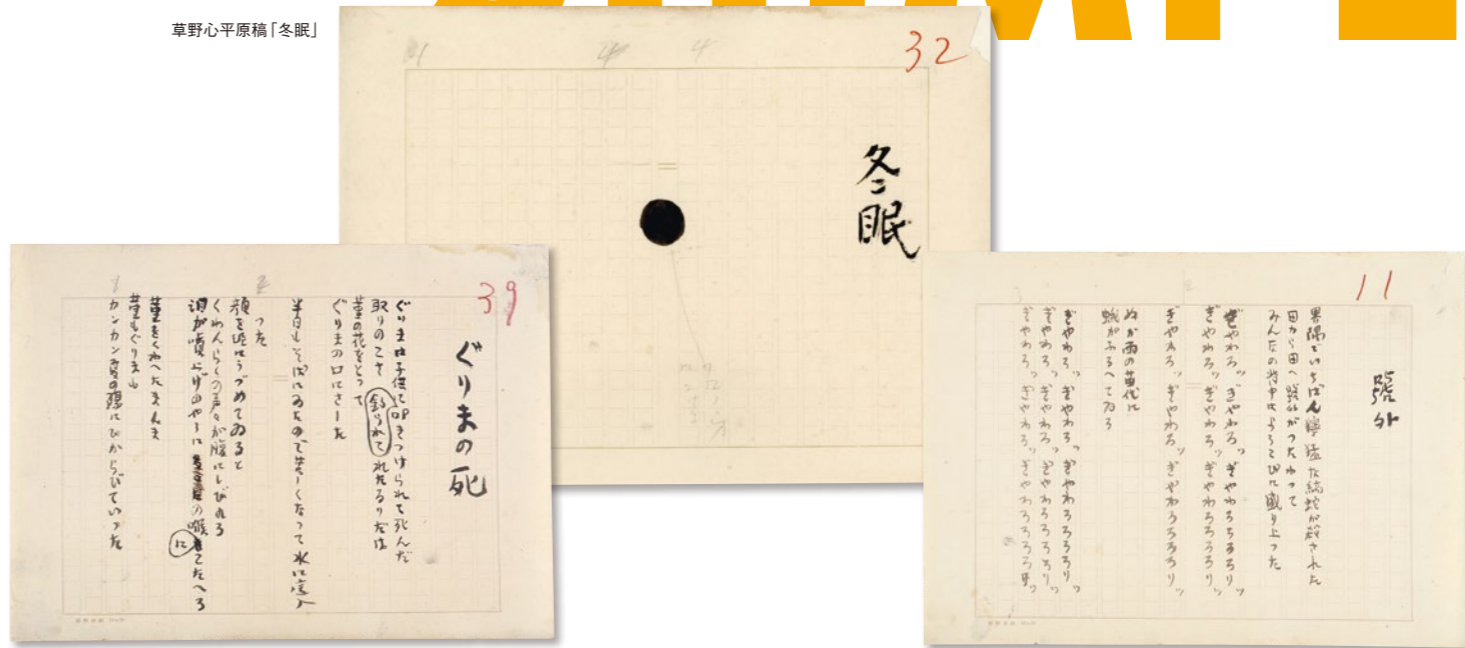 草野心平原稿「冬眠」
32
冬眠
39
ぐりまの死
ぐりまは子供に叩きつけられて死んだ
取りのこされたるりだは
釣られて
菫の花をとって
ぐりまの口にさした
半日もそばにゐたので苦しくなって水に這入
った
顔を泥にうづめてゐると
くわんらくの声々が腹にしびれる
泪が噴上げのやうに
の喉
に
こたへる
菫をくわへたまんま
菫もぐりまも
カンカン夏の陽にひからびていった
11
號外
界隈でいちばん獰猛な縞蛇が殺された
田から田へ號外がつたわって
みんなの背中はよろこびに盛り上った
ぎやわろッ ぎやわろッ ぎやわろろろろりッ
ぎやわろッ ぎやわろッ ぎやわろろろろりッ
ぎやわろッ ぎやわろッ ぎやわろろろろりッ
ぬか雨の苗代に
蛾がふるへてゐる
ぎやわろッ ぎやわろッ ぎやわろろろろりッ
ぎやわろッ ぎやわろッ ぎやわろろろろりッ
ぎやわろッ ぎやわろッ ぎやわろろろろりッ